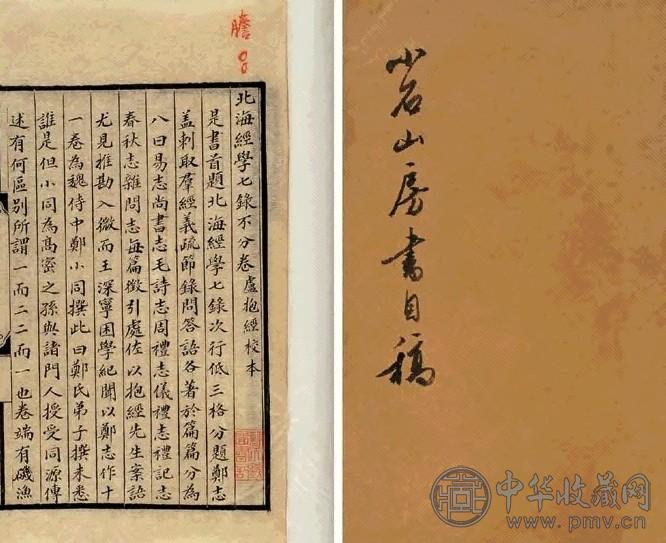 小石山房書目稿
膽
北海經學七錄不分卷盧抱經校本
是書首題北海經學七錄次行低三格分題鄭志
蓋刺取羣經義疏節錄問答語各著於篇篇分為
八曰易志尚書志毛詩志周禮志儀禮志禮記志
春秋志雜問志每篇徵引處佐以抱經先生案語
尤見推勘入微而王深寧困學紀聞以鄭志作十
一卷為魏侍中鄭小同撰此曰鄭氏弟子撰未悉
誰是但小同為高密之孫與諸門人授受同源傳
述有何區別所謂一而二二而一也卷端有磯漁
中华收藏网
www.pmv.cn